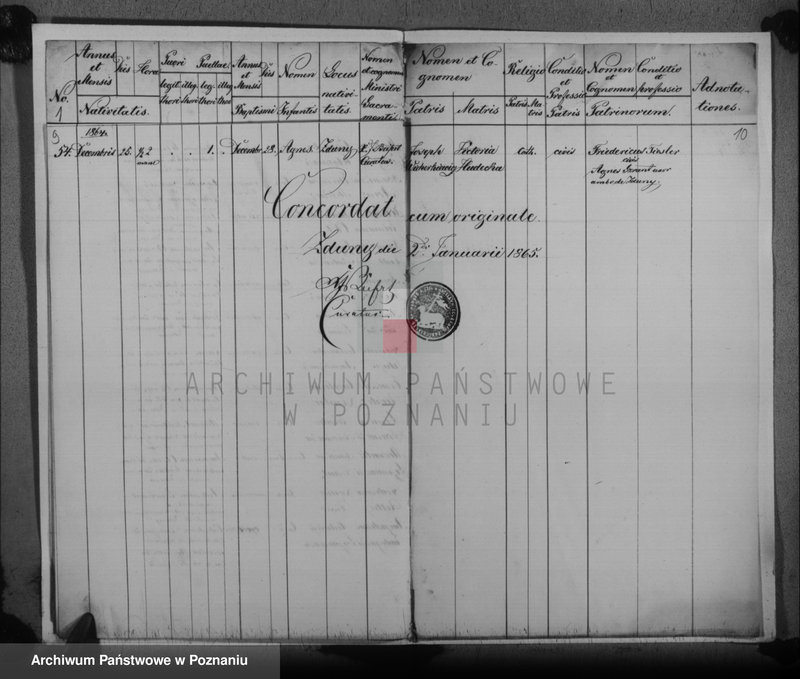 No. 1
Annus et Mensis
Dies
Hora
Nativitatis.
Pueri
legit. illeg.
thori thori
Puellae
leg. illeg.
thori thori
Annus et Mensis
Dies
Baptismi
Nomen
Infantis
Locus nativitatis.
Nomen et cognomen Ministri Sacramentis
Nomen et Cognomen
Patris
Matris
Religio
Patris Matris
Conditio et Professio Patris
Nomen et Cognomen
Conditio et professio
Patrinorum.
Adnotationes.
9
10
1864.
54. Decembris 25. ½2 1. Decembr. 28. Agnes Zduny Curatus. Joseph Victoria Hudecka cath. civis Fridericus
civis
Agnes uxor
ambo de Zduny.
Concordat cum originale.
Zduny die 2. Januarii 1865.
Curatus
ARCHIWUM PAŃSTWOWE
W POZNANIU
Archiwum Państwowe w Poznaniu